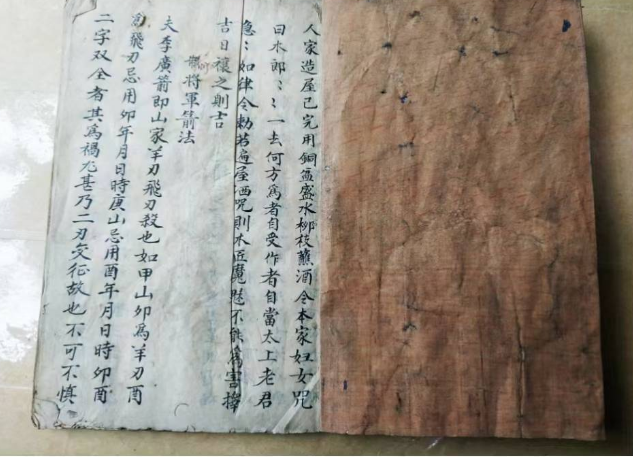 人家造屋已完用銅盆盛水柳枝蘸洒令本家妇女咒
曰木郎〻〻一去何方為者自受作者自當太上老君
急〻如律令勅若遍屋洒咒則木匠魔魅不能為害擇
吉日禳之則吉
將軍箭法
夫李廣箭即山家羊刃飛刃殺也如甲山卯為羊刃酉
為飛刃忌用卯年月日時庚山忌用酉年月日時卯酉
二字双全者其為禍尤甚乃二刃交征故也不可不慎